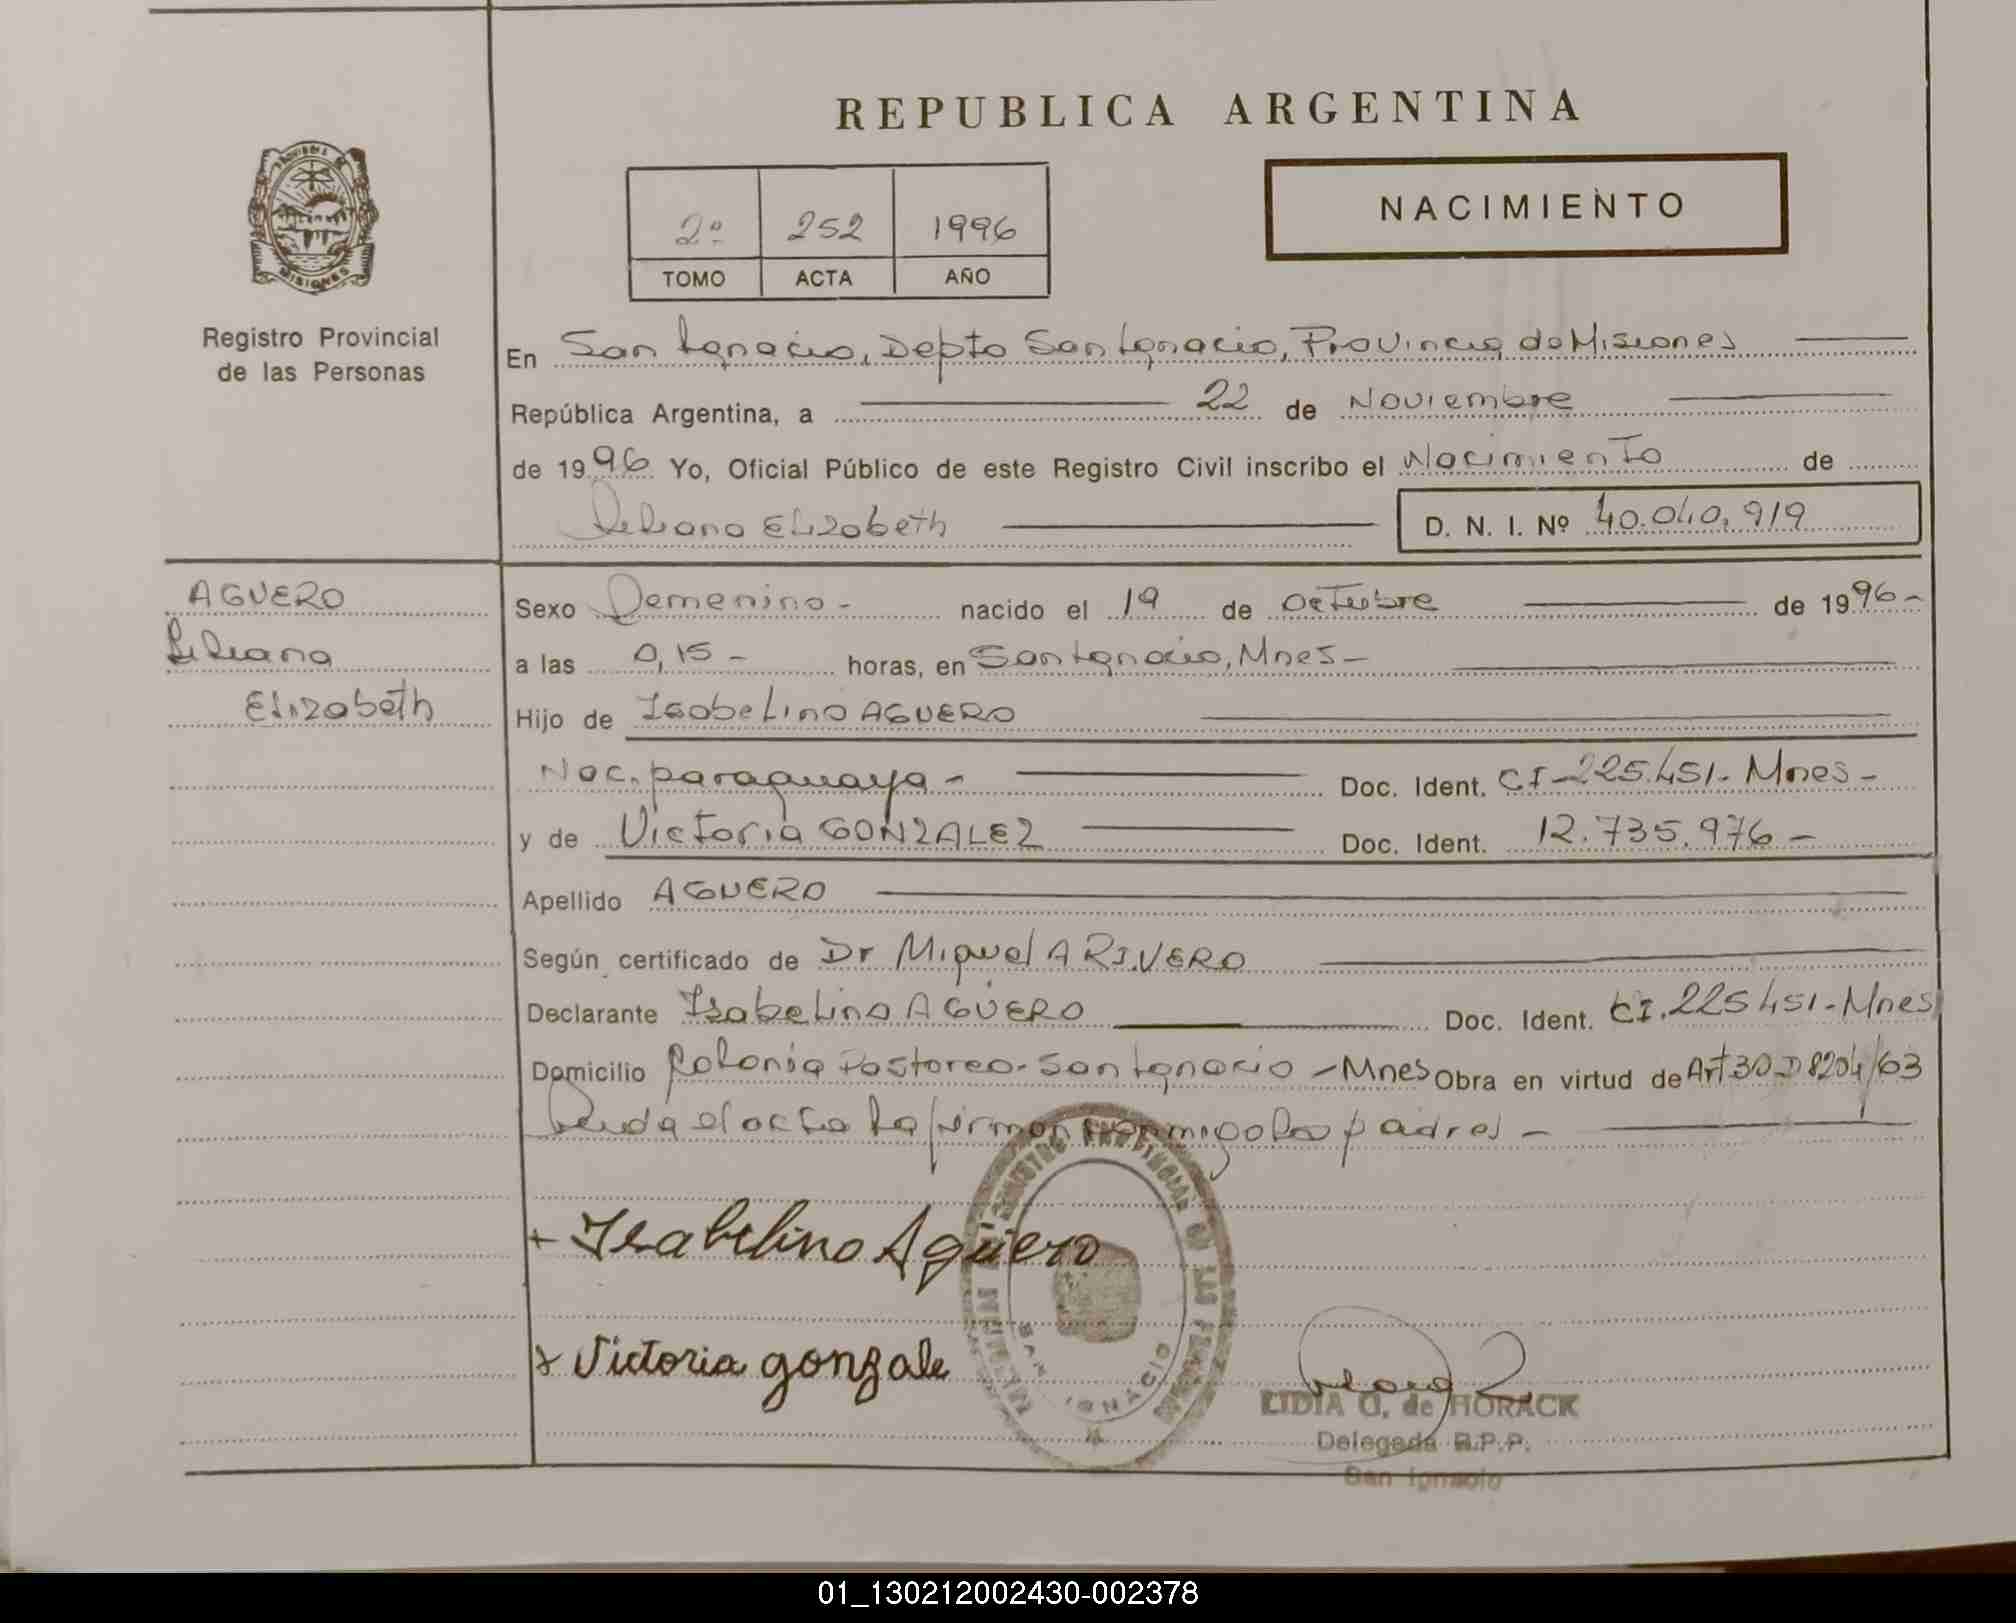 REPUBLICA ARGENTINA
PROVINCIA DE
MISIONES
Registro Provincial
de las Personas
2º 252 1996
TOMO ACTA AÑO
NACIMIENTO
En San Ignacio, Depto San Ignacio, Provincia de Misiones
República Argentina, a 22 de Noviembre
de 1996 Yo, Oficial Público de este Registro Civil inscribo el Nacimiento de
Liliana Elizabeth D. N. I. Nº 40.040.919
AGUERO
Liliana
Elizabeth
Sexo Femenino- nacido el 19 de octubre de 1996-
a las 0,15- horas, en San Ignacio, Mnes-
Hijo de Isabelino AGUERO
Nac. paraguaya- Doc. Ident. CI-225.451- Mnes-
y de Victoria GONZALEZ Doc. Ident. 12.735.976-
Apellido AGUERO
Según certificado de Dr Miguel A RIVERO
Declarante Isabelino AGÜERO Doc. Ident. CI.225451-Mnes
Domicilio Colonia Pastoreo-San Ignacio-Mnes Obra en virtud de Art 30 D 8204/63
Leida el acta la firman conmigo los padres-
+ Isabelino Agüero
x Victoria gonzale
REGISTRO PROVINCIAL DE LAS PERSONAS
SAN IGNACIO
LIDIA G. de HORACK
Delegada R.P.P.
San Ignacio
01_130212002430-002378